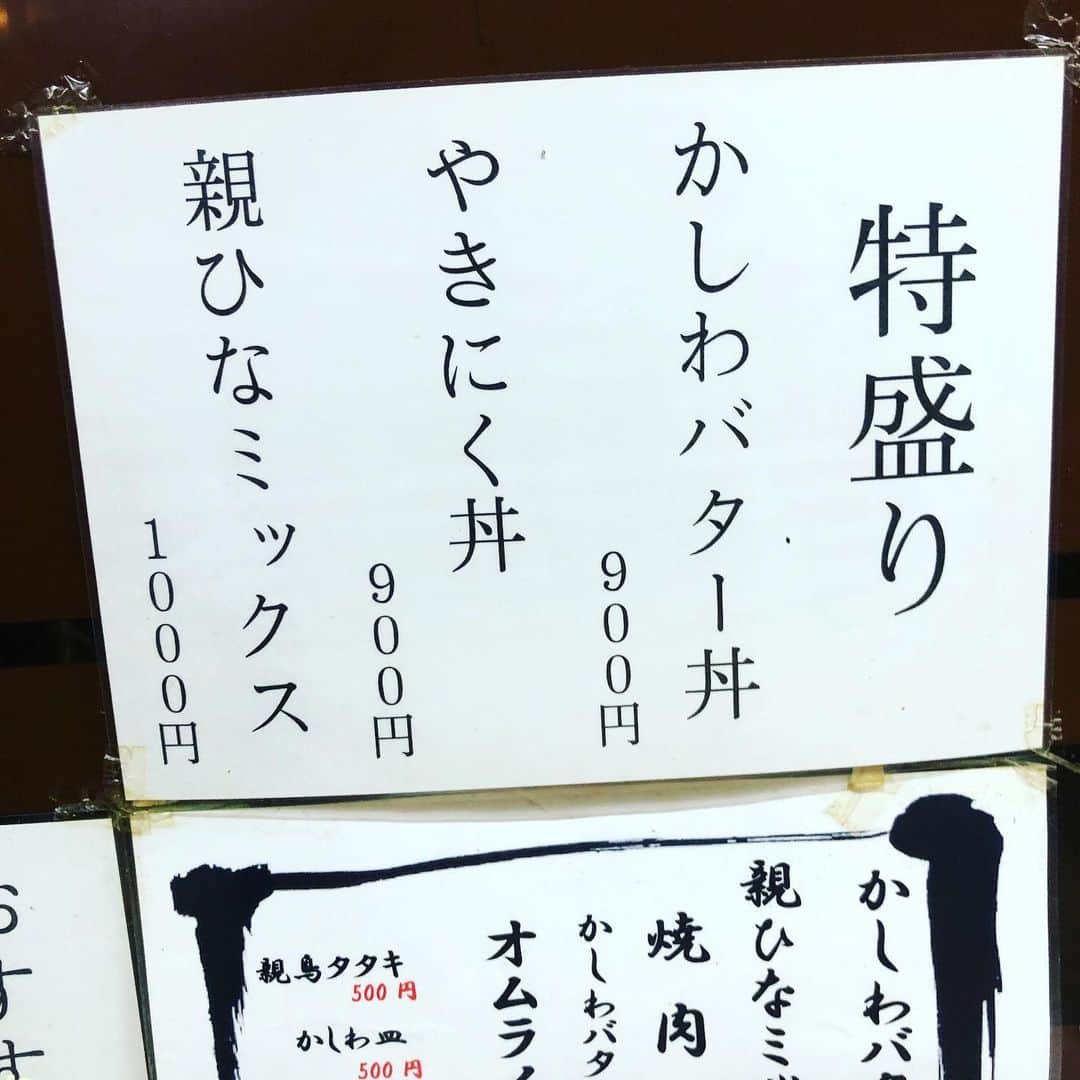 特盛り
かしわバター丼
900円
やきにく丼
900円
親ひなミックス
1000円
かしわバタ
親ひなミッ
焼肉
かしわバタ
オムラ
親鳥タタキ
500円
かしわ皿
500円
おすす